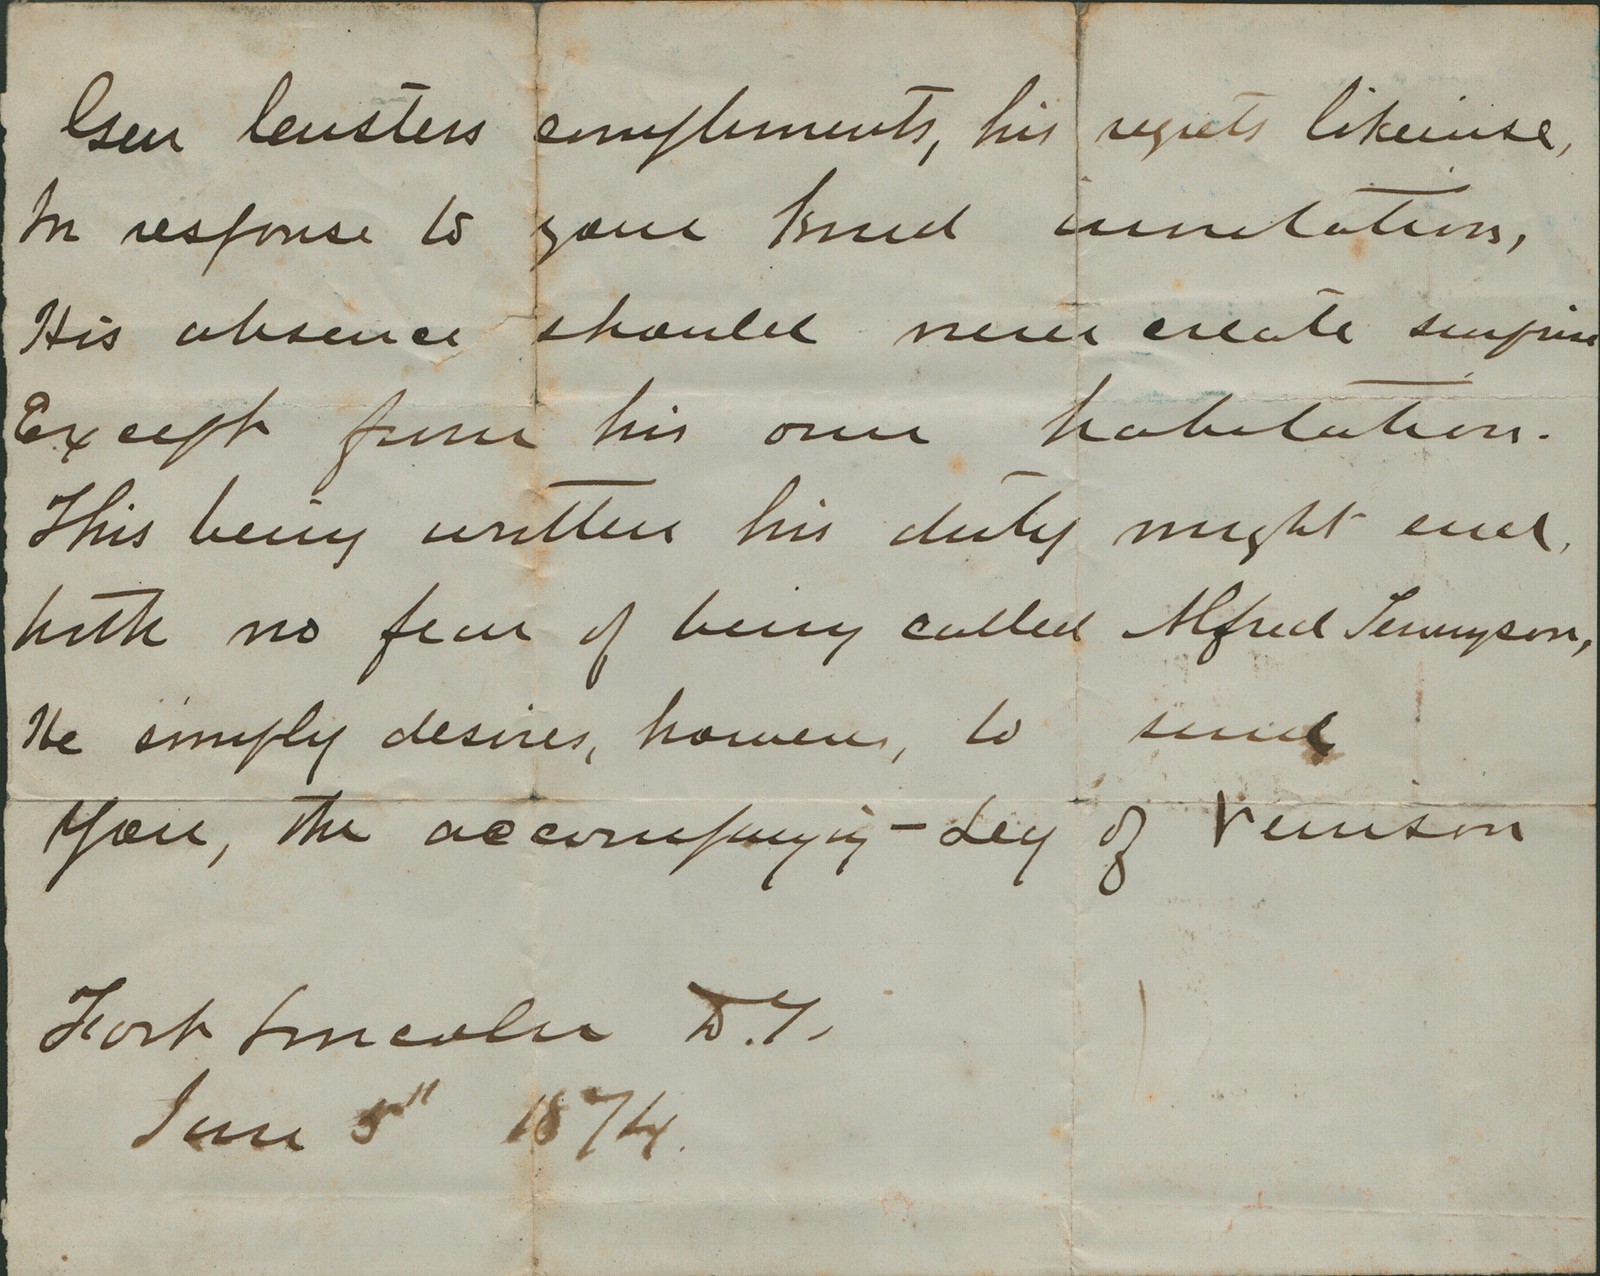 Gen Custers compliments, his regrets likewise,
In response to your kind invitation,
His absence should never create surprise
Except from his own habitation.
This being written his duty might end,
With no fear of being called Alfred Tennyson,
He simply desires, however, to send
You, the accompanying - Leg of Venison
Fort Lincoln D.T.
June 5" 1874.